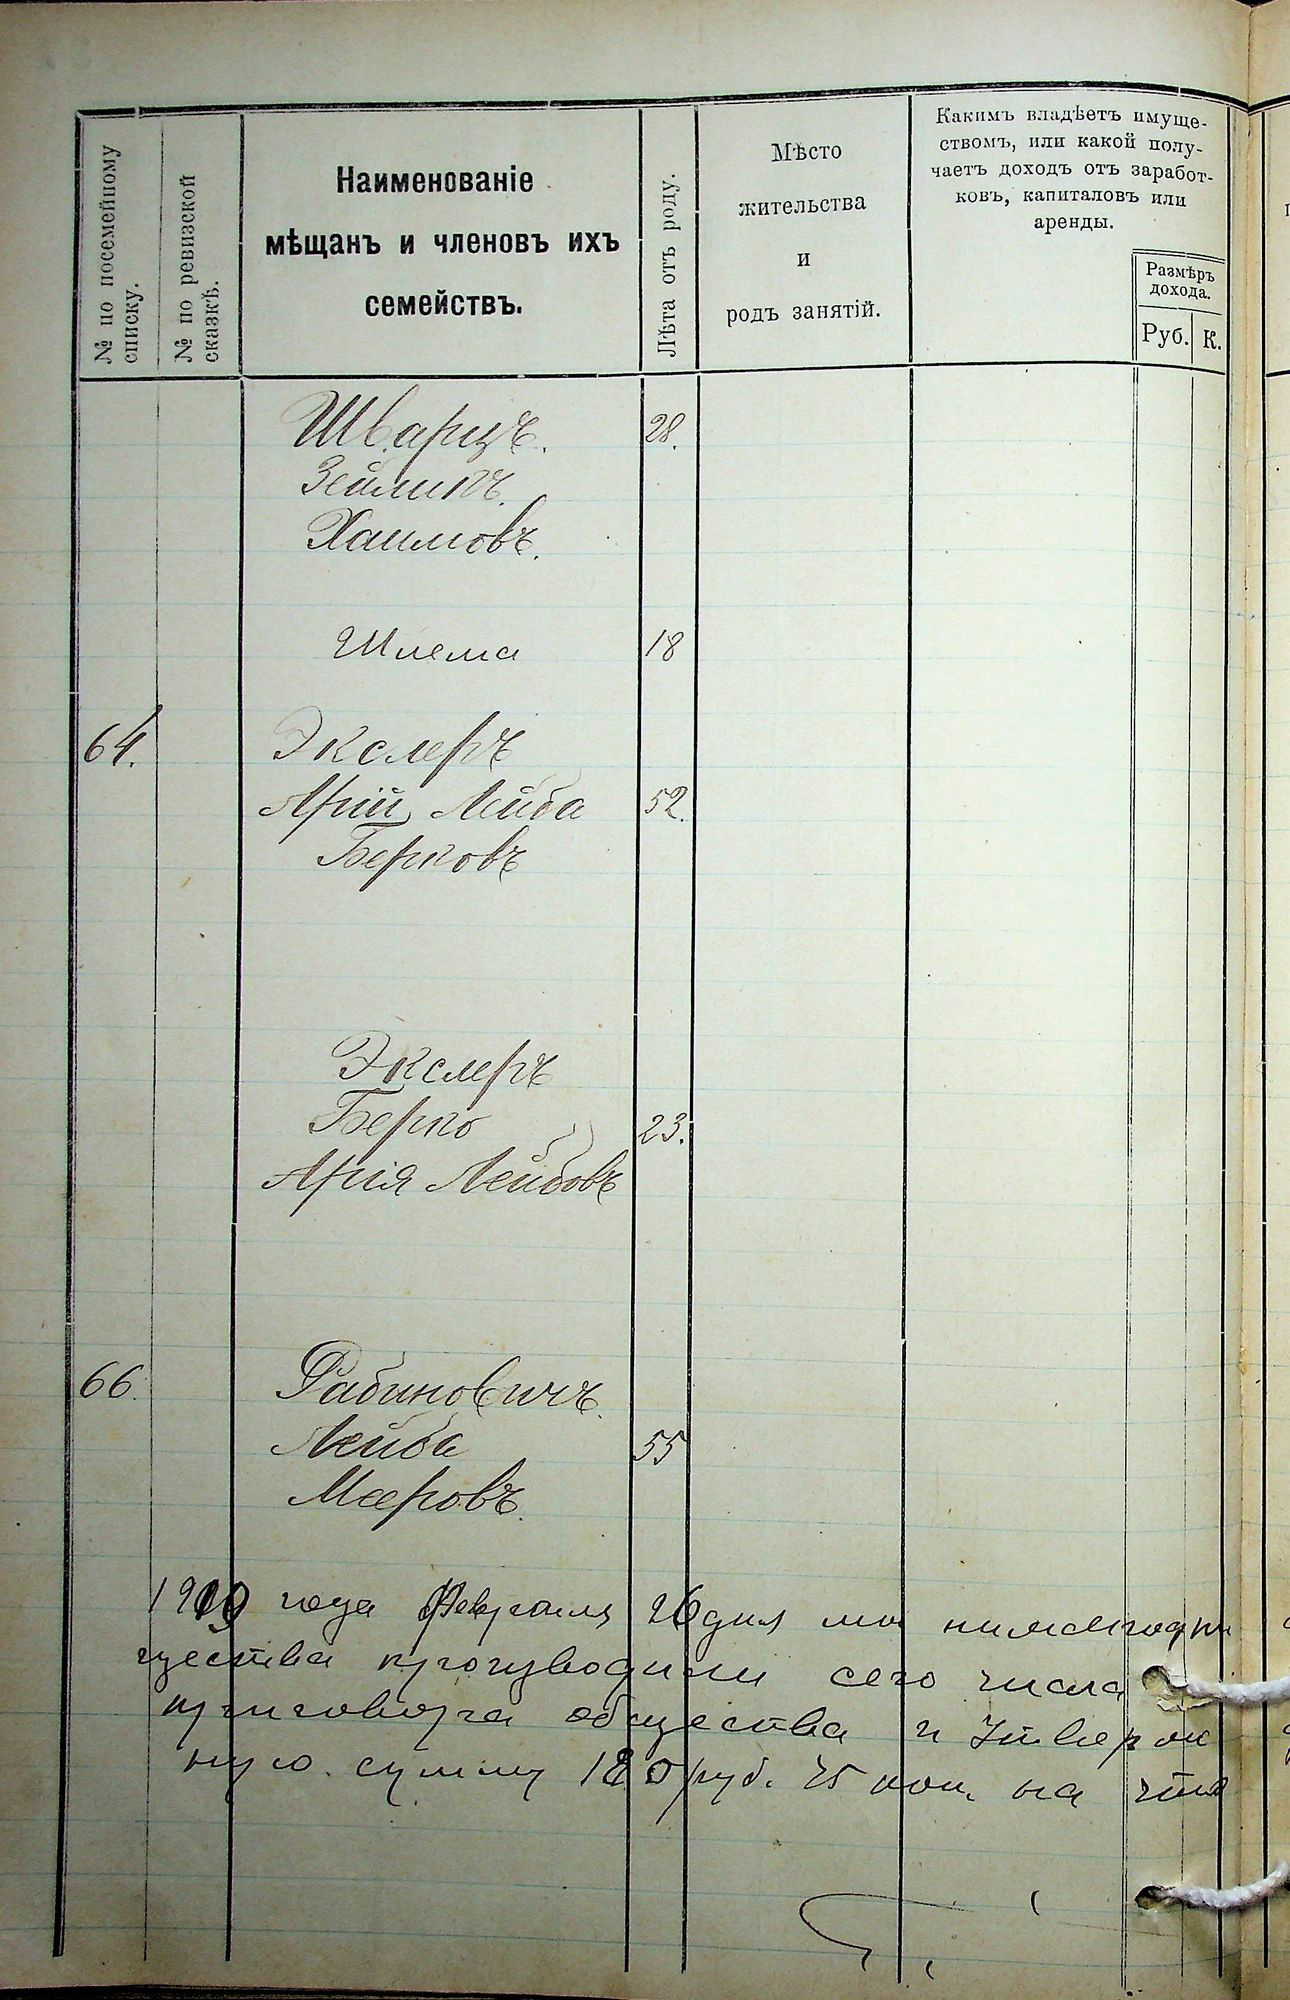 № по посемейному
списку.
№ по ревизской
сказкѣ.
Наименованіе
мѣщанъ и членовъ ихъ
семействъ.
Лѣта отъ роду.
Мѣсто
жительства
и
родъ занятій.
Какимъ владѣетъ имуще-
ствомъ, или какой полу-
чаетъ доходъ отъ заработ-
ковъ, капиталовъ или
аренды.
Размѣръ
дохода.
Руб. К.
Шварцъ. 28.
Зейликъ.
Хаимовъ.
Шлема 18
64. Экслеръ
Арій Лейба 52.
Берковъ
Экслеръ
Берко 23.
Арія Лейбовъ
66. Рабиновичъ.
Лейба 55
Мееровъ.
года Февраля 26 дня мы нижеподпи
щества производили сего числа
приговора общества и Утверж
ную сумму 180 руб. 75 коп. на